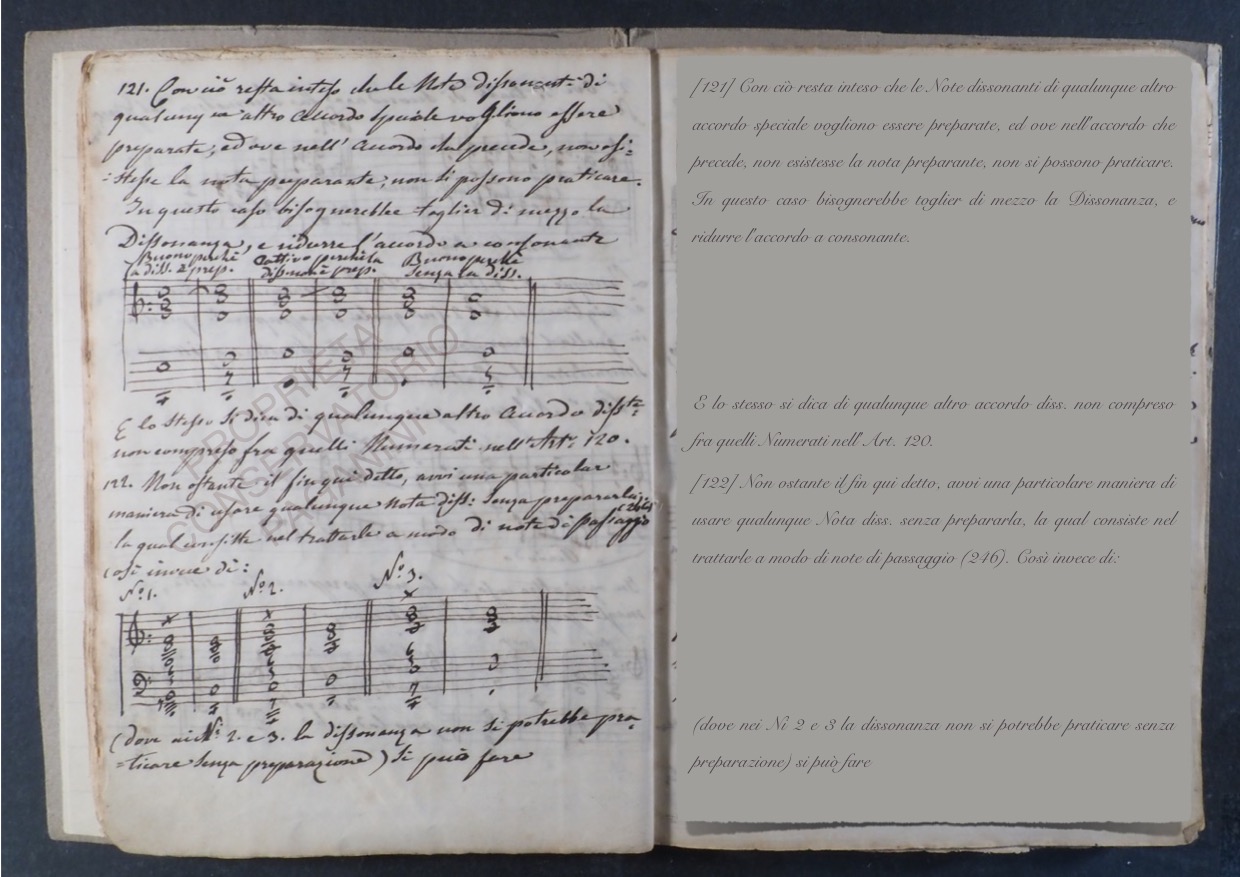 121. Con ciò resta inteso che le Note dissonanti di
qualunque altro accordo speciale vogliono essere
preparate; ed ove nell' accordo che precede, non esi=
=stesse la nota preparante, non si possono praticare.
In questo caso bisognerebbe toglier di mezzo la
Dissonanza, e ridurre l'accordo a consonante
Buono perchè Cattivo perchè la Buono perchè
la diss. è prep. diss. non è prep. Senza la diss.
E lo stesso si dica di qualunque altro accordo diss.
non compreso fra quelli Numerati nell' Art. 120.
122. Non ostante il fin qui detto, avvi una particolar
maniera di usare qualunque nota diss: senza prepararla;
la qual consiste nel trattarle a modo di note di passaggio (246)
così invece di:
No. 1. No. 2. No. 3.
(dove nei Ni. 2. e 3. la dissonanza non si potrebbe pra=
=ticare senza preparazione) si può fare
PROPRIETÀ
CONSERVATORIO
PAGANINI
[121] Con ciò resta inteso che le Note dissonanti di qualunque altro
accordo speciale vogliono essere preparate, ed ove nell'accordo che
precede, non esistesse la nota preparante, non si possono praticare.
In questo caso bisognerebbe toglier di mezzo la Dissonanza, e
ridurre l'accordo a consonante.
E lo stesso si dica di qualunque altro accordo diss. non compreso
fra quelli Numerati nell' Art. 120.
[122] Non ostante il fin qui detto, avvi una particolare maniera di
usare qualunque Nota diss. senza prepararla, la qual consiste nel
trattarle a modo di note di passaggio (246). Così invece di:
(dove nei Ni 2 e 3 la dissonanza non si potrebbe praticare senza
preparazione) si può fare